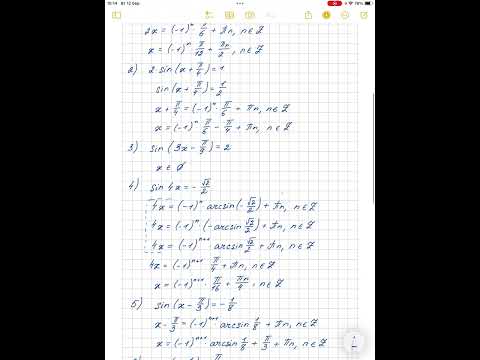 10:14 Вт 12 Sep
78%
2x = (-1)ⁿ · π/6 + πn, n∈Z
x = (-1)ⁿ π/12 + πn/2, n∈Z
2) 2·sin(x+π/4) = 1
sin(x+π/4) = 1/2
x + π/4 = (-1)ⁿ · π/6 + πn, n∈Z
x = (-1)ⁿ · π/6 - π/4 + πn, n∈Z
3) sin(3x - π/9) = 2
x ∈ ∅
4) sin 4x = -√2/2
4x = (-1)ⁿ arcsin(-√2/2) + πn, n∈Z
4x = (-1)ⁿ · (-arcsin √2/2) + πn, n∈Z
4x = (-1)ⁿ⁺¹ arcsin √2/2 + πn, n∈Z
4x = (-1)ⁿ⁺¹ · π/4 + πn, n∈Z
x = (-1)ⁿ⁺¹ · π/16 + πn/4, n∈Z
5) sin(x - π/3) = -1/8
x - π/3 = (-1)ⁿ⁺¹ arcsin 1/8 + πn, n∈Z
x = (-1)ⁿ⁺¹ arcsin 1/8 + π/3 + πn, n∈Z